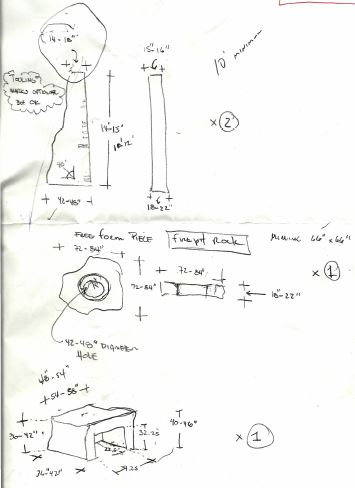 14-18"
15-16"
6
10' minimum
TOOLING
MARKS OPTIONAL
BUT OK
14'-13'
x 2
90°
42-48"
6
18-22"
FREE FORM PIECE
firepit Rock
MINIMUM 66" x 66"
72-84"
72-84"
x 1
72-84"
18-22"
42-48" DIAMETER
HOLE
48"-54"
54-58"
40-46"
36-42"
32.25
x 1
36-42"
24.25